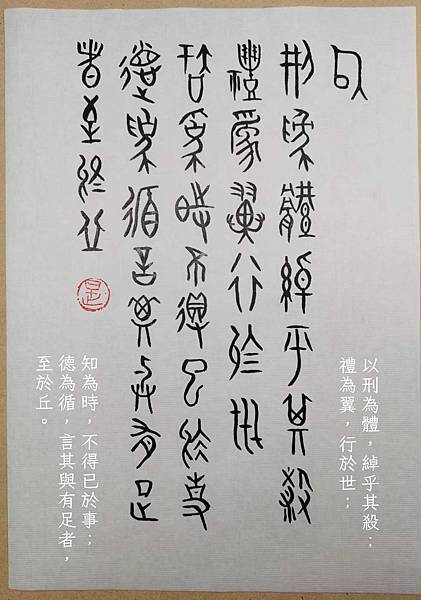 以
刑為體綽乎其殺
禮為翼行於世
知為時不得已於事
德為循言其與有足
者至於丘
以刑為體，綽乎其殺；
禮為翼，行於世；
知為時，不得已於事；
德為循，言其與有足者，
至於丘。